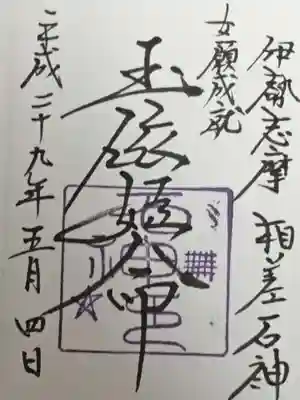 伊勢志摩 相差石神
女願成就
玉依姫命
平成二十九年五月四日